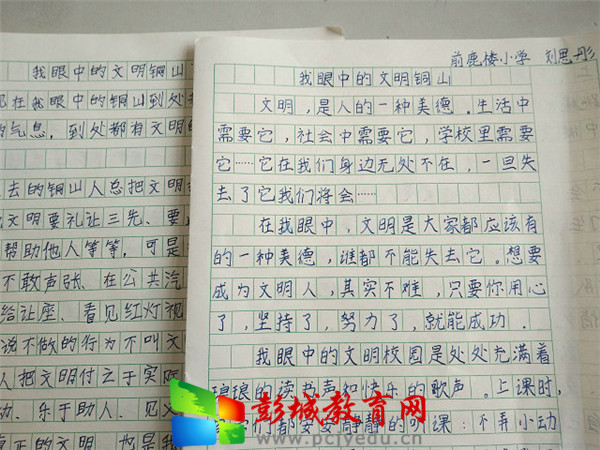 我眼中的文明铜山
在我眼中的铜山到处
的气息，到处都有文明的
去的铜山人总把文明
文明要礼让三先、要
帮助他人等等，可是
不敢声张、在公共汽
给让座、看见红灯视
说不做的行为不叫文
人把文明付之于实际
动、乐于助人、见义
真正的文明，也是我
前鹿楼小学 刘思彤
我眼中的文明铜山
文明，是人的一种美德。生活中
需要它，社会中需要它，学校里需要
它……它在我们身边无处不在，一旦失
去了它我们将会……
在我眼中，文明是大家都应该有
的一种美德，谁都不能失去它。想要
成为文明人，其实不难，只要你用心
了，坚持了，努力了，就能成功．
我眼中的文明校园是处处充满着
琅琅的读书声和快乐的歌声。上课时，
们都安安静静的听课：不弄小动
彭城教育网
www.pcjyedu.cn